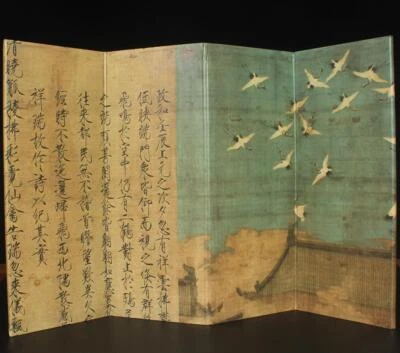 政和壬辰上元之次夕忽有祥雲拂
低映端門衆皆仰而視之倏有群
飛鳴於空中仍有二鶴對止於鴟
之端頗甚閒適餘皆翱翔如應奏
往來都民無不稽首瞻望歎異久
經時不散迤邐歸飛西北隅散感
祥瑞故作詩以紀其實
清曉觚稜拂彩霓仙禽告瑞忽來儀飄